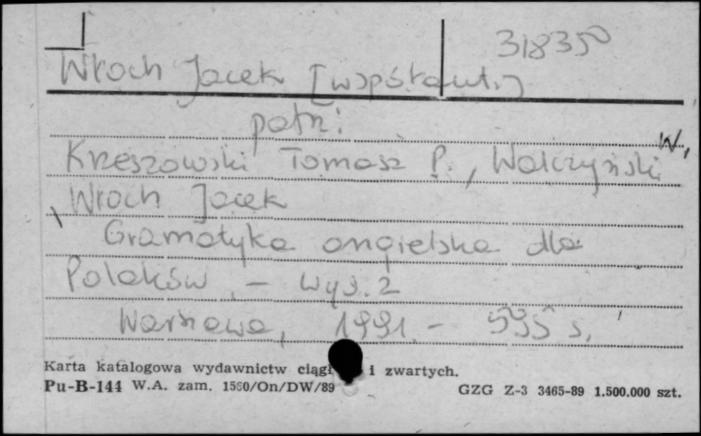 318350
Włoch Jacek [współaut.]
patrz:
Krzeszowski Tomasz P., Walczyński W.,
Włoch Jacek
Gramatyka angielska dla
Polaków. – Wyd. 2
Warszawa, 1991. – 595 s.
Karta katalogowa wydawnictw ciągł i zwartych.
Pu-B-144 W.A. zam. 1560/On/DW/89 GZG Z-3 3465-89 1.500.000 szt.